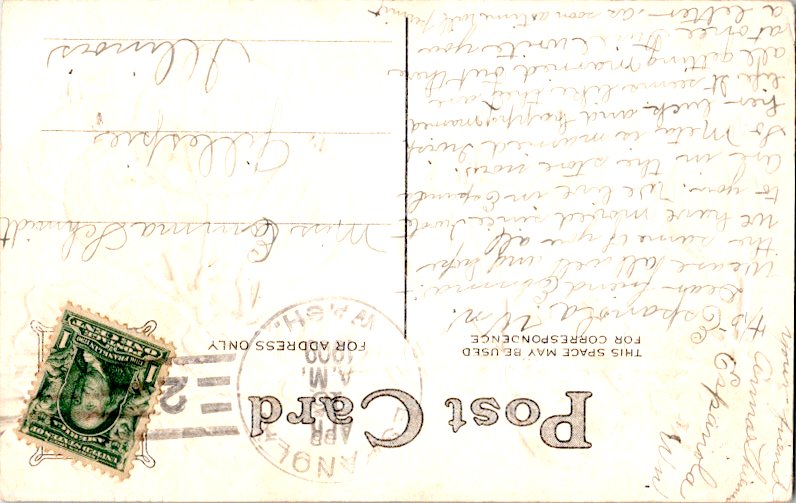 Post Card
THIS SPACE MAY BE USED
FOR CORRESPONDENCE
FOR ADDRESS ONLY
ESPANOLA
APR
A.M.
1909
WASH.
2
UNITED STATES OF
AMERICA
1 FRANKLIN 1
ONE CENT
your friend
Anna
Espanola
Wn.
4/5 Espanola, Wn.
Dear friend Emma:-
We are all well and hope
the same of you all
we have moved since I wrote
to you. We live in Espanola
are in the store now.
So Meta is married I wish
her luck and happy married
life. It seems like they are
all getting married out there
at once. I write you
a letter as soon as time will permit
Miss Emma Schmidt
Gillespie
Illinois